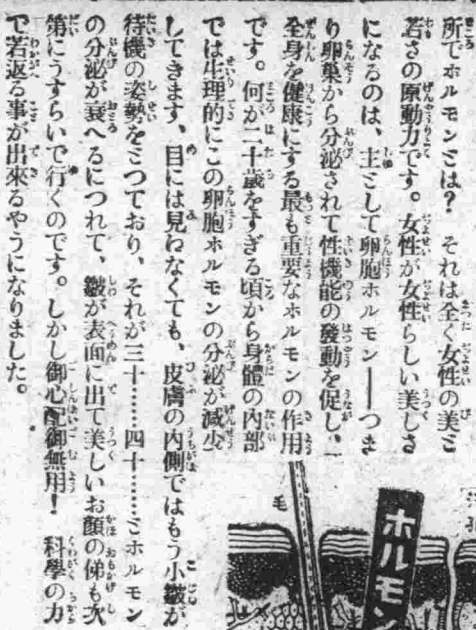 所でホルモンとは? それは全く女性の美と
若さの原動力です。女性が女性らしい美しさ
になるのは、主として卵胞ホルモン――つま
り卵巣から分泌されて性機能の發動を促し、
全身を健康にする最も重要なホルモンの作用
です。何が二十歳をすぎる頃から身體の内部
では生理的にこの卵胞ホルモンの分泌が減少
してきます、目には見わなくても、皮膚の内側ではもう小皺が
待機の姿勢をとつており、それが三十……四十……とホルモン
の分泌が衰へるにつれて、皺が表面に出て美しいお顔の俤も次
第にうすらいで行くのです。しかし御心配御無用! 科學の力
で若返る事が出來るやうになりました。
毛
ホルモン